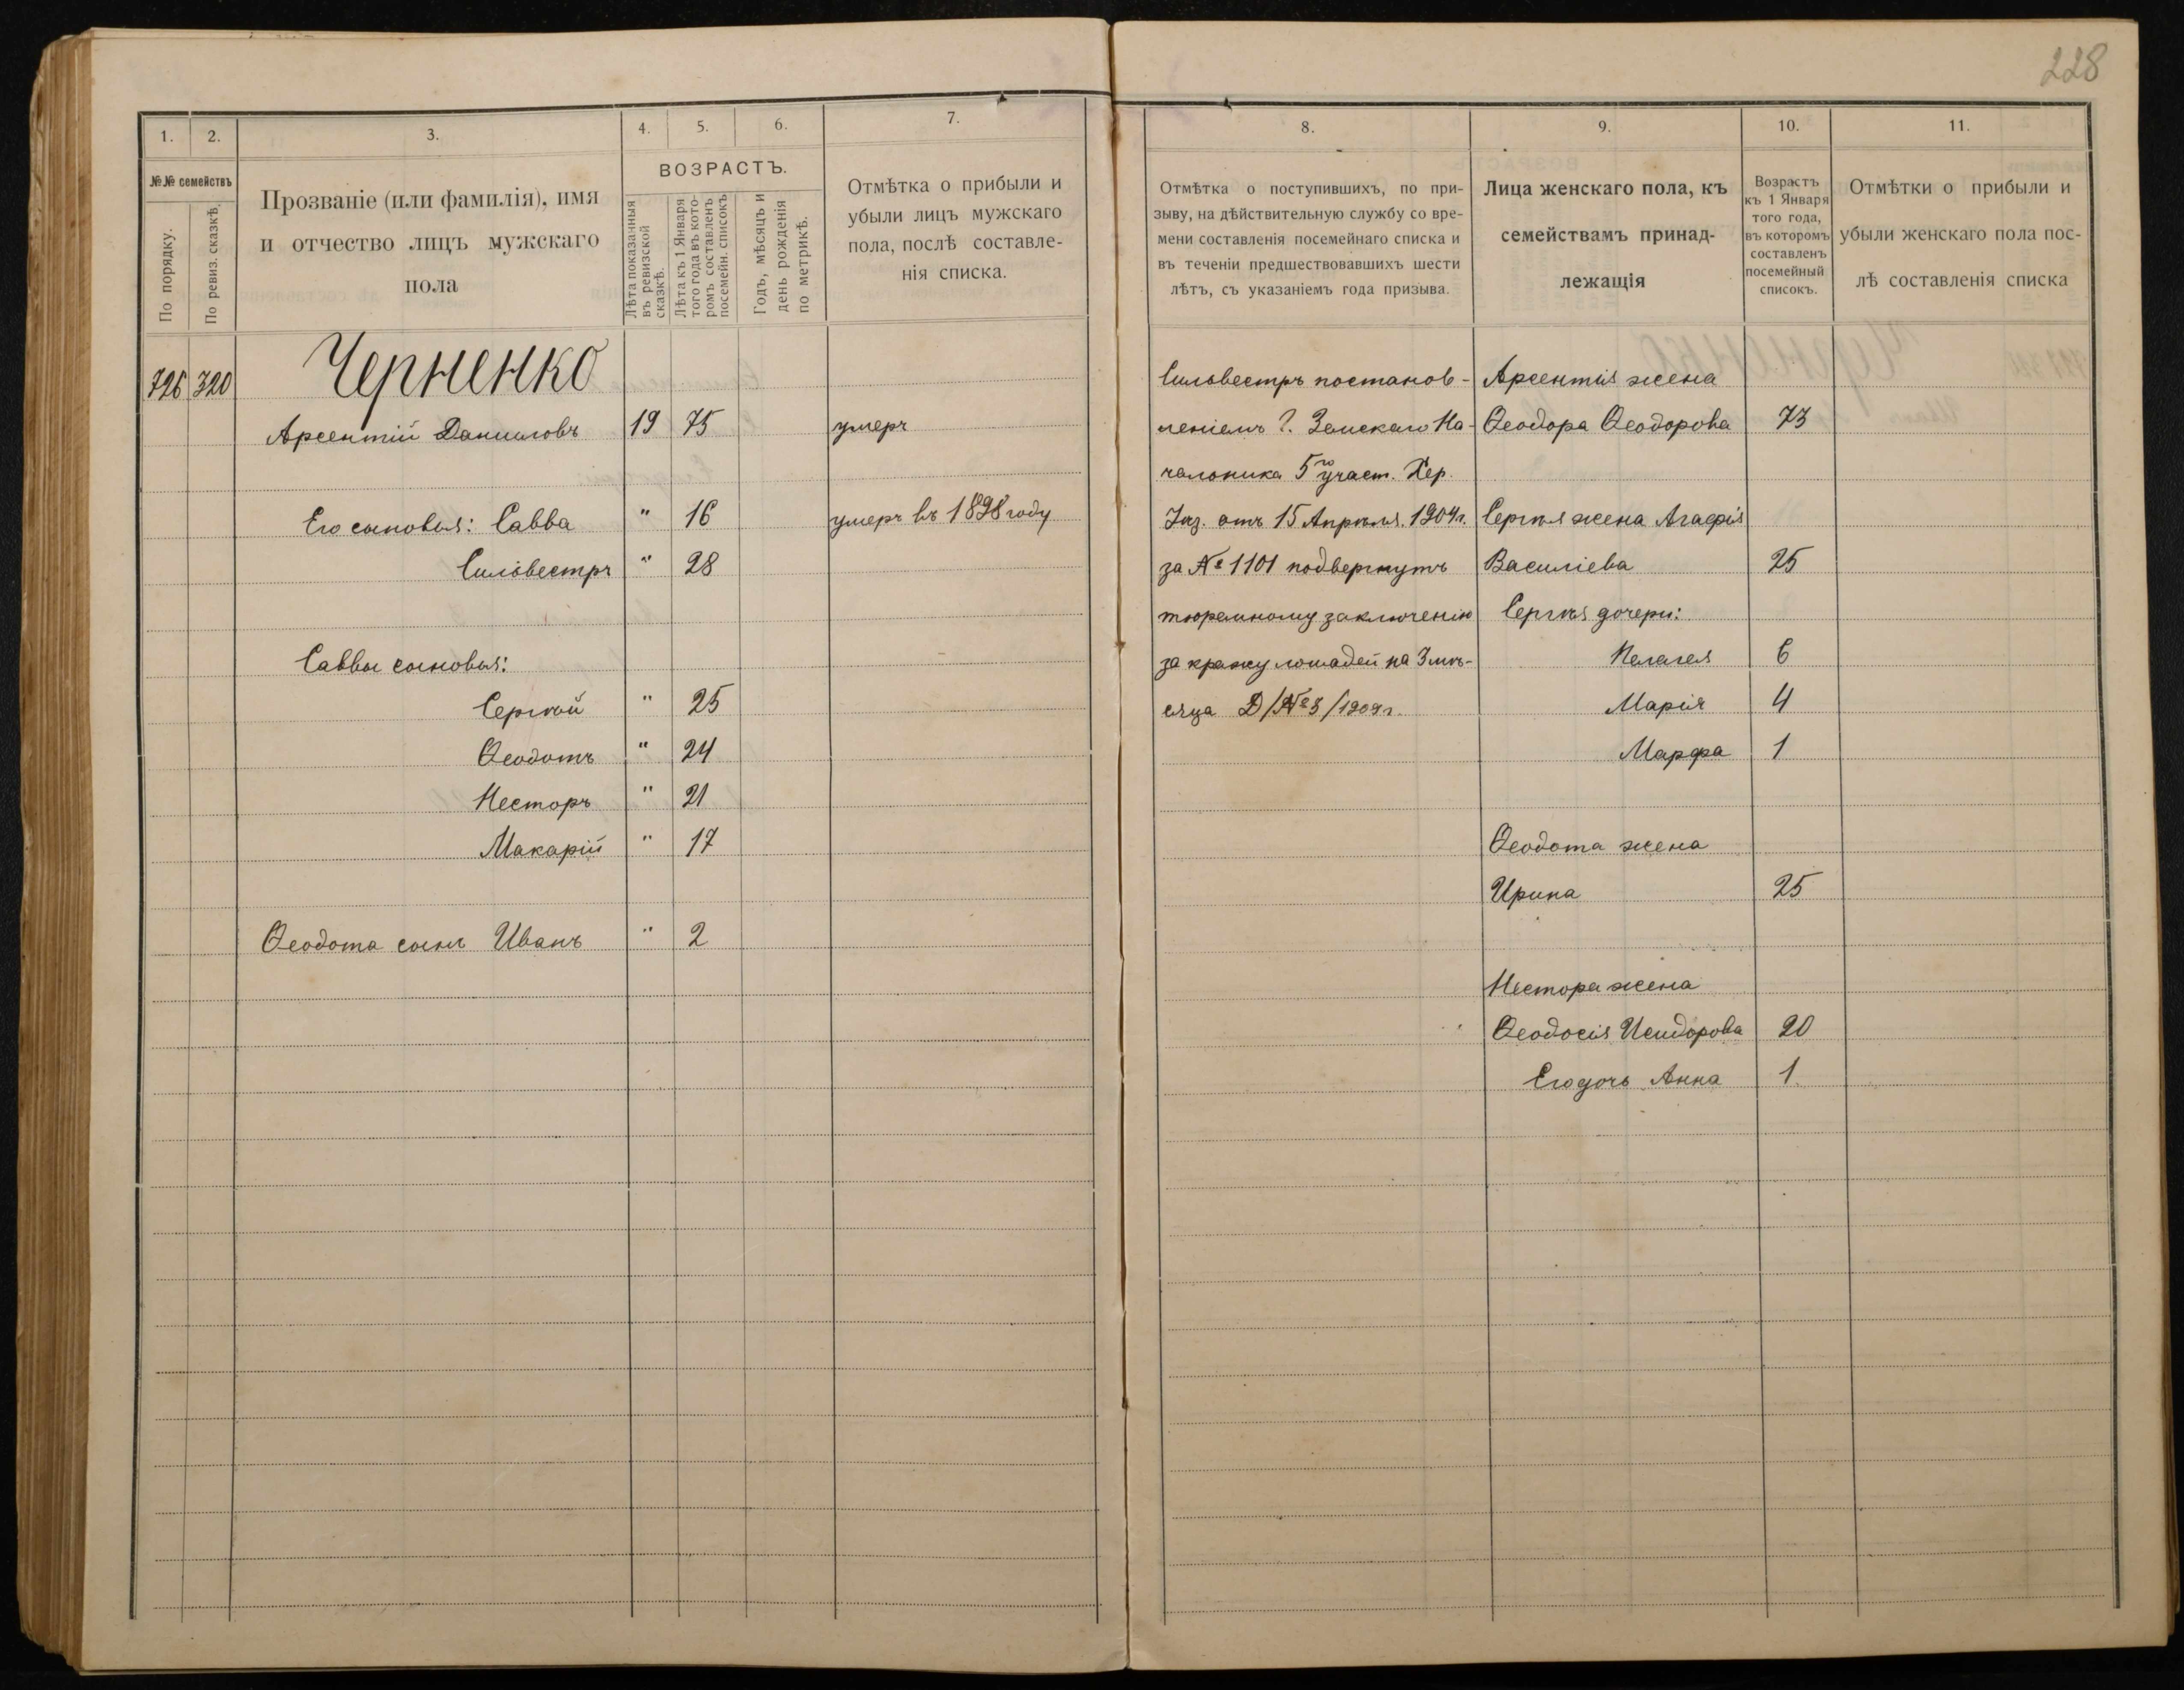 228
1.
2.
3.
4.
5.
6.
7.
№№ семействъ
По порядку.
По ревиз. сказкѣ.
Прозваніе (или фамилія), имя
и отчество лицъ мужскаго
пола
ВОЗРАСТЪ.
Лѣта показанныя
въ ревизской
сказкѣ.
Лѣта къ 1 Января
того года въ кото-
ромъ составленъ
посемейн. списокъ
Годъ, мѣсяцъ и
день рожденія
по метрикѣ.
Отмѣтка о прибыли и
убыли лицъ мужскаго
пола, послѣ составле-
нія списка.
726 320 Черненко
Арсентій Даниловъ 19 75 умеръ
Его сыновья: Савва " 16 умеръ въ 1898 году
Сильвестръ " 28
Саввы сыновья:
Сергѣй " 25
Ѳеодотъ " 24
Несторъ " 21
Макарій " 17
Ѳеодота сынъ Иванъ " 2
8.
9.
10.
11.
Отмѣтка о поступившихъ, по при-
зыву, на дѣйствительную службу со вре-
мени составленія посемейнаго списка и
въ теченіи предшествовавшихъ шести
лѣтъ, съ указаніемъ года призыва.
Лица женскаго пола, къ
семействамъ принад-
лежащія
Возрастъ
къ 1 Января
того года,
въ которомъ
составленъ
посемейный
списокъ.
Отмѣтки о прибыли и
убыли женскаго пола пос-
лѣ составленія списка
Сильвестръ постанов-
леніемъ Г. Земскаго На-
чальника 5го участ. Хер.
Уѣз. отъ 15 Апрѣля. 1904г.
за № 1101 подвергнутъ
тюремному заключенію
за кражу лошадей на 3 мѣ-
сяца Д/№3/1909г.
Арсентія жена
Ѳеодора Ѳеодорова 73
Сергѣя жена Агафія
Василіева 25
Сергѣя дочери:
Пелагея 6
Марія 4
Марфа 1
Ѳеодота жена
Ирина 25
Нестора жена
Ѳеодосія Исидорова 20
Его дочь Анна 1